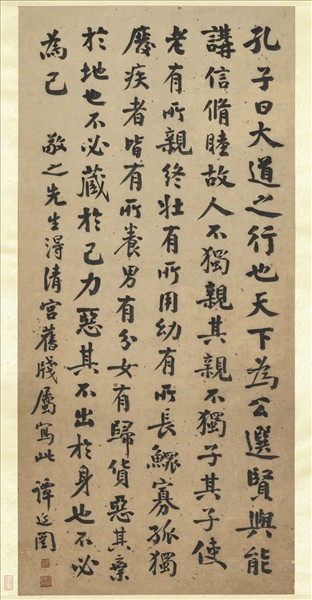 孔子曰大道之行也天下為公選賢與能
講信脩睦故人不獨親其親不獨子其子使
老有所親終壯有所用幼有所長鰥寡孤獨
廢疾者皆有所養男有分女有歸貨惡其棄
於地也不必藏於己力惡其不出於身也不必
為己 敬之先生得清宮舊牋屬寫此 譚延闓